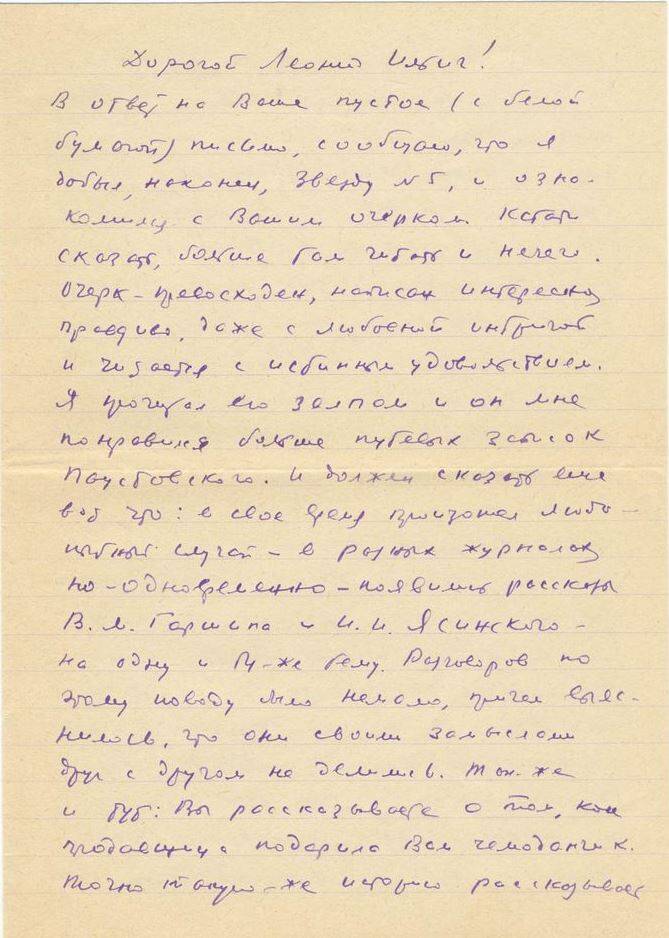 Дорогой Леонид Ильич!
В ответ на Ваше пустое (с белой
бумагой) письмо, сообщаю, что я
добыл, наконец, Звезду №5, и озна-
комился с Вашим очерком. Кстати
сказать, больше там читать и нечего.
Очерк – превосходен, написан интересно,
правдиво, даже с любовной интригой
и читается с истинным удовольствием.
Я прочитал его залпом и он мне
понравился больше путевых записок
Паустовского. И должен сказать еще
вот что: в свое время произошел любо-
пытный случай – в разных журналах
но – одновременно – появились рассказы
В. М. Гаршина и И. И. Ясинского –
на одну и ту-же тему. Разговоров по
этому поводу было немало, причем выяс-
нилось, что они своими замыслами
друг с другом не делились. Так-же
и тут: Вы рассказываете о том, как
продавщица подарила Вам чемоданчик.
Точно такую-же историю рассказывает